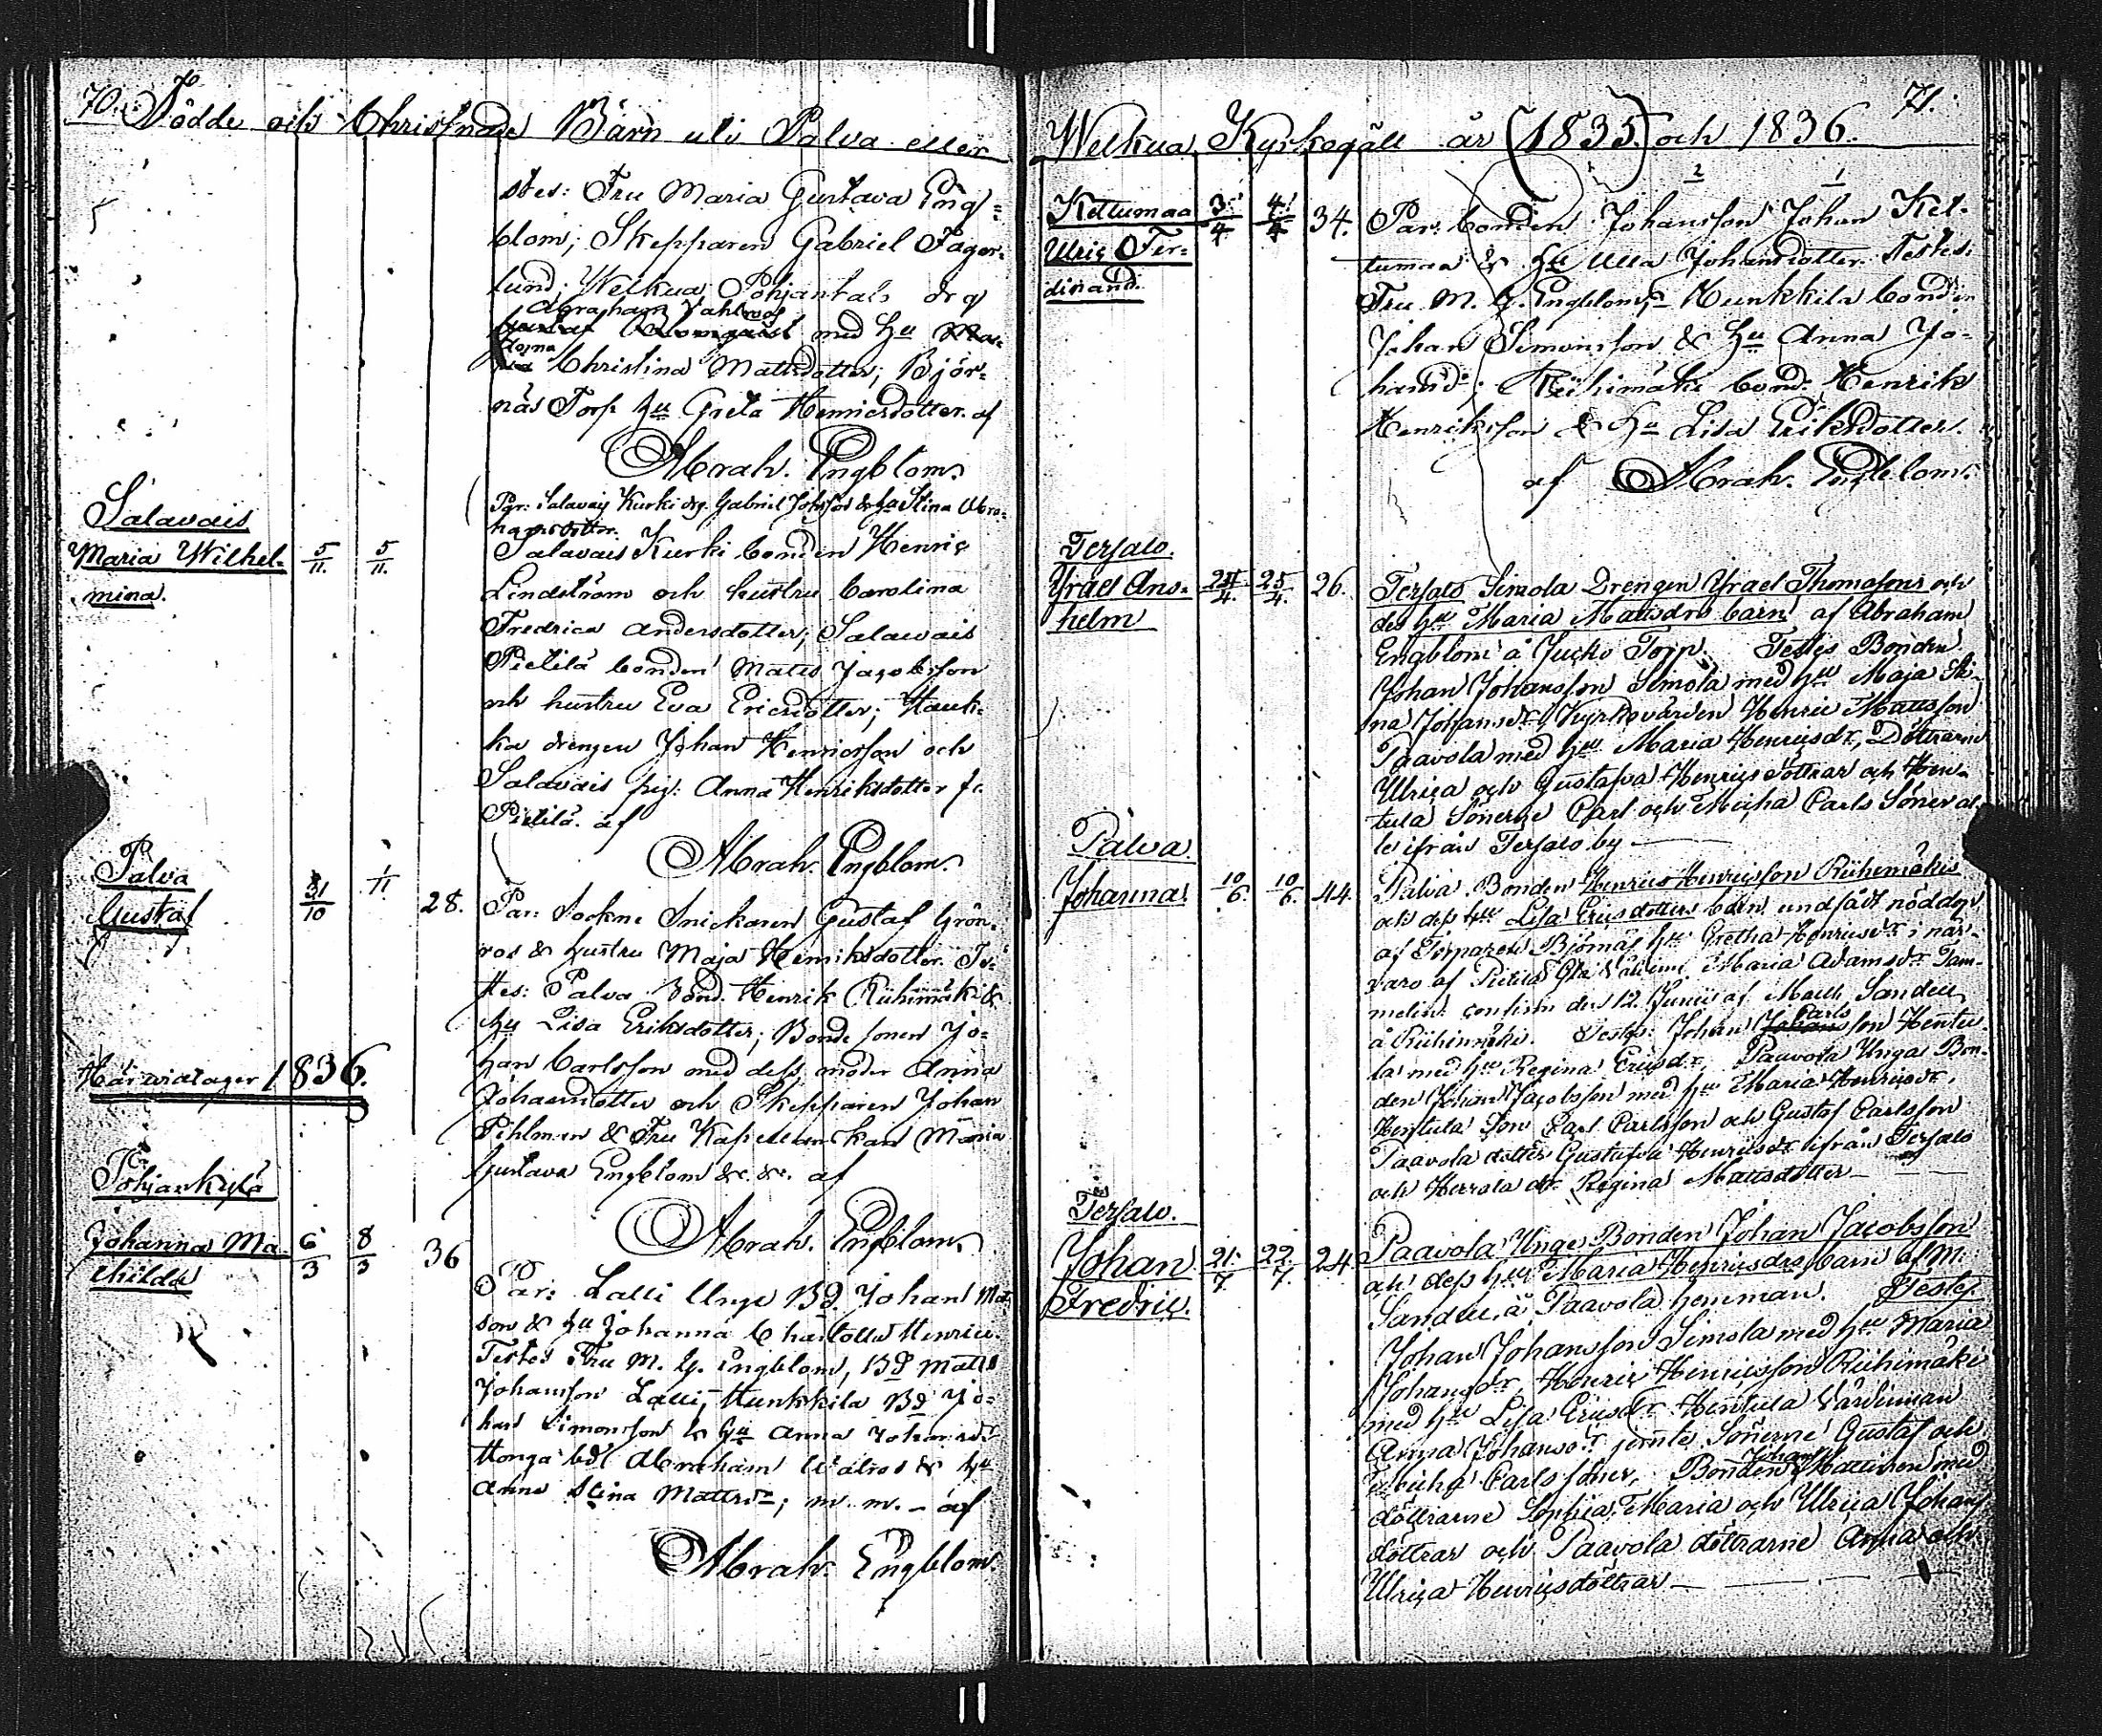 70. Födde och Christnade Barn uti Palva eller
stes: Fru Maria Gustava Eng=
blom; Skepparen Gabriel Fager=
lund; Welkua Pohjantalo drg
Abraham Vahlroos
med hu
Christina Mattsdotter; Björ=
näs Torp. hu Greta Henricsdotter. af
Abrah. Engblom.
Par: Salavais Kurki drg. Gabriel Johsson & hu Stina Abra=
hamsdotter.
Salavais
Maria Wilhel=
mina.
5/11. 5/11.
Salavais Kurki bonden Henric
Lindström och hustru Carolina
Fredrica Andersdotter; Salavais
Pietilä bonden Matts Jacobsson
och hustru Eva Ericsdotter; Hauk=
ka drengen Johan Henricsson och
Salavais pig: Anna Henriksdotter fr.
Pietilä. af
Abrah. Engblom.
Palva
Gustaf
31/10 1/11. 28.
Par: Sockne Snickaren Gustaf Grön=
roos & hustru Maja Henriksdotter. Te=
stes: Palva Bond. Henrik Riihimäki &
hu Lisa Eriksdotter; Bonde sonen Jo=
han Carlsson med dess moder Anna
Johansdotter och Skepparen Johan
Pihlman & Fru Kapellanskan Maria
Gustava Engblom &c. &c. af
Abrah. Engblom.
Här vidtager 1836.
Pohjankylä
Johanna Ma=
thilda
6/3 8/3 36
Par: Lalli Unge Bd. Johan Mat
son & hu Johanna Charlotta Henrics.
Testes Fru M. G. Engblom, Bd Matts
Johansson Lalli, Hunkkila Bd Jo=
han Simonsson & hu Anna Johansdr
Abraham Walros & hu
Anna Stina Mattsdr; m. m. - af
Abrah. Engblom.
Welkua Kyrkogäll år (1835) och 1836. 71.
Kettumaa
Ulric Fer=
dinand.
3/4 4/4 34.
2 1
Par: bonden Johansson Johan Ket=
tumaa & hu Ulla Johansdotter. Testes:
Fru M. G. Engblom; Hunkkila bonden
Johan Simonsson & hu Anna Jo=
hansd:; Riihimäki bond: Henrik
Henriksson & hu Lisa Eriksdotter.
af Abrah. Engblom.
Tersalo.
Israel Ans=
helm
24/4. 25/4. 26.
Tersalo Simola Drengen Israel Thomassons och
des hu Maria Mattsdrs barn af Abraham
Engblom å Torp. Testes Bonden
Johan Johansson Simola med hu Maja Sti=
na Johansdr, Kyrkovärden Henric Mattsson
Paavola med hu Maria Henricsdr, Döttrarne
Ulrica och Gustafva Henrics döttrar och Hen=
tula Sönerne Carl och Micha Carls Söner al=
le ifrån Tersalo by —
Palva.
Johanna
10/6. 10/6. 44.
Palva. Bonden Henrics Henricsson Riihemäkis
och dess hu Lisa Ericsdotters barn, undfått nöddop
af Torparen Björnäs hu Gretha Henricsdr i när=
varo af Pietilä Maria Adamsdr Tam=
melin: confirm: den 12 Junii af Matts Sandell
Carls
å Riihimäki. Testes: Johan son Hentu=
la med hu Regina Ericsdr, Paavola Unga Bon=
den Johan Jacobsson med hu Maria Henricsdr,
Hentula Son Carl Carlsson och Gustaf Carlsson
Paavola dotter Gustafva Henricsdr ifrån Tersalo
och Herrala dtr Regina Mattsdotter —
Tersalo.
Johan
Fredric.
21/7 22/7. 24
Paavola Unge Bonden Johan Jacobsson
och dess hu Maria Henricsdrs barn af M:
Sandell å Paavola hemman. Testes
Johan Johansson Simola med hu Maria
Johansdr, Henric Henricsson Riihimäki
med hu Lisa Ericsdr Hentula Värdinnan
Anna Johansdr jemte Sönerne Gustaf och
Micha Carls söner, Bonden Johan Mattinen med
döttrarne Sophia, Maria och Ulrica Johans
döttrar och Paavola döttrarne Anna och
Ulrica Henricsdöttrar —